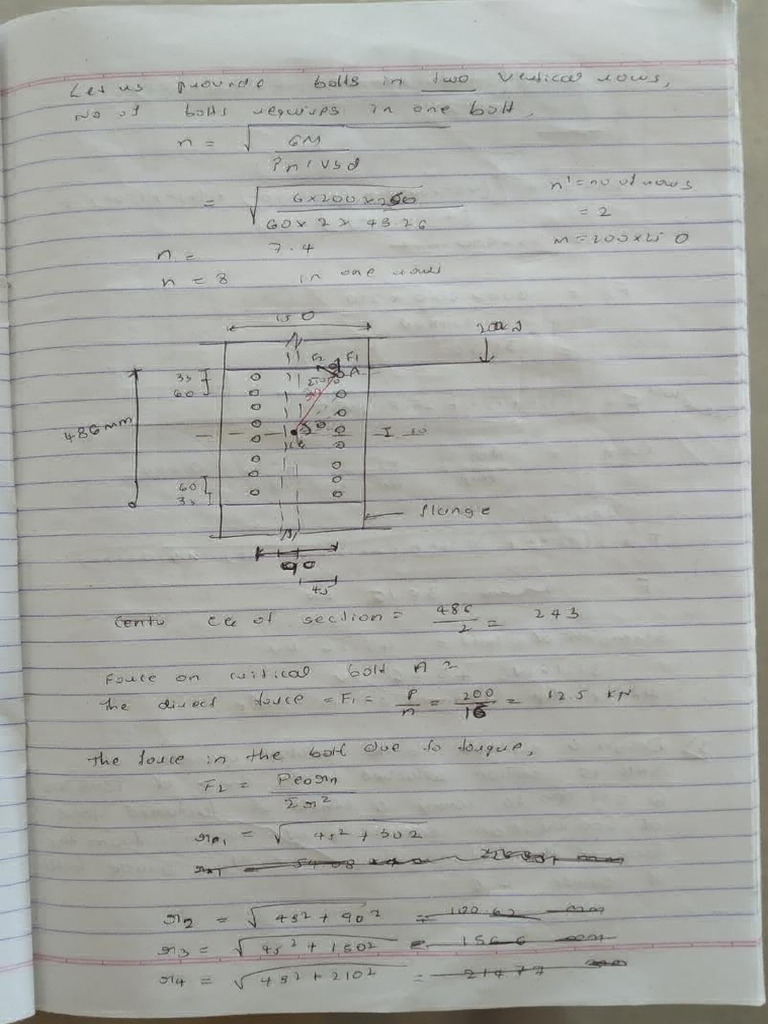 Let us provide bolts in two vertical rows,
No of bolts requires in one bolt,
n = √ 6M
Pn'Vsd
= √ 6×200×250
60×2×45.26
n' = no of rows
= 2
M = 200×250
n = 7.4
n = 8 in one rows
150
200kN
F2 F1
A
35
60
486mm
CG
60
35
flange
90
45
Centu CG of section = 486/2 = 243
Force on critical bolt A =
The direct force = F1 = P/n = 200/16 = 12.5 kN
The force in the bolt due to torque,
F2 = Peorn
Σr²
r1 = √ 45² + 302
r2 = √ 45² + 90² = 100.62 mm
r3 = √ 45² + 150² = 156.6 mm
r4 = √ 45² + 210² = 214.77 mm